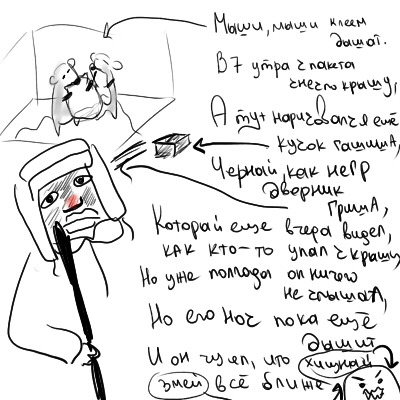 Мыши, мыши клеем
дышат.
В 7 утра с пакта
снесло крышу,
А тут нарисовался ещё
кусок гашиша,
Черный, как негр
дворник
Гриша,
Которай еще вчера видел,
как кто-то упал с крыши
Но уже полгода он ничего
не слышал,
Но его нос пока ещё
дышит
И он чуел, что хищный
змей всё ближе